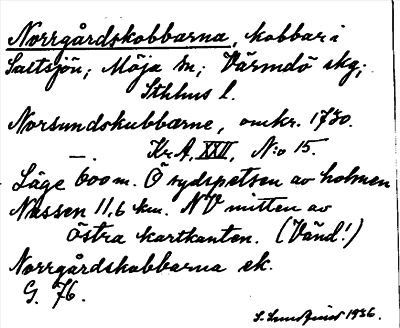 Norrgårdskobbarna, kobbar i
Saltsjön; Möja sn; Värmdö skg;
Sthlms l.
Norsundskubbærne, omkr. 1730.
Kr A, XXII, N:o 15.
Läge 600 m. Ö sydspetsen av holmen
Nassen 11,6 km. NV mitten av
östra kartkanten. (Vänd!)
Norrgårdskobbarna ek.
G. 76.
1936.